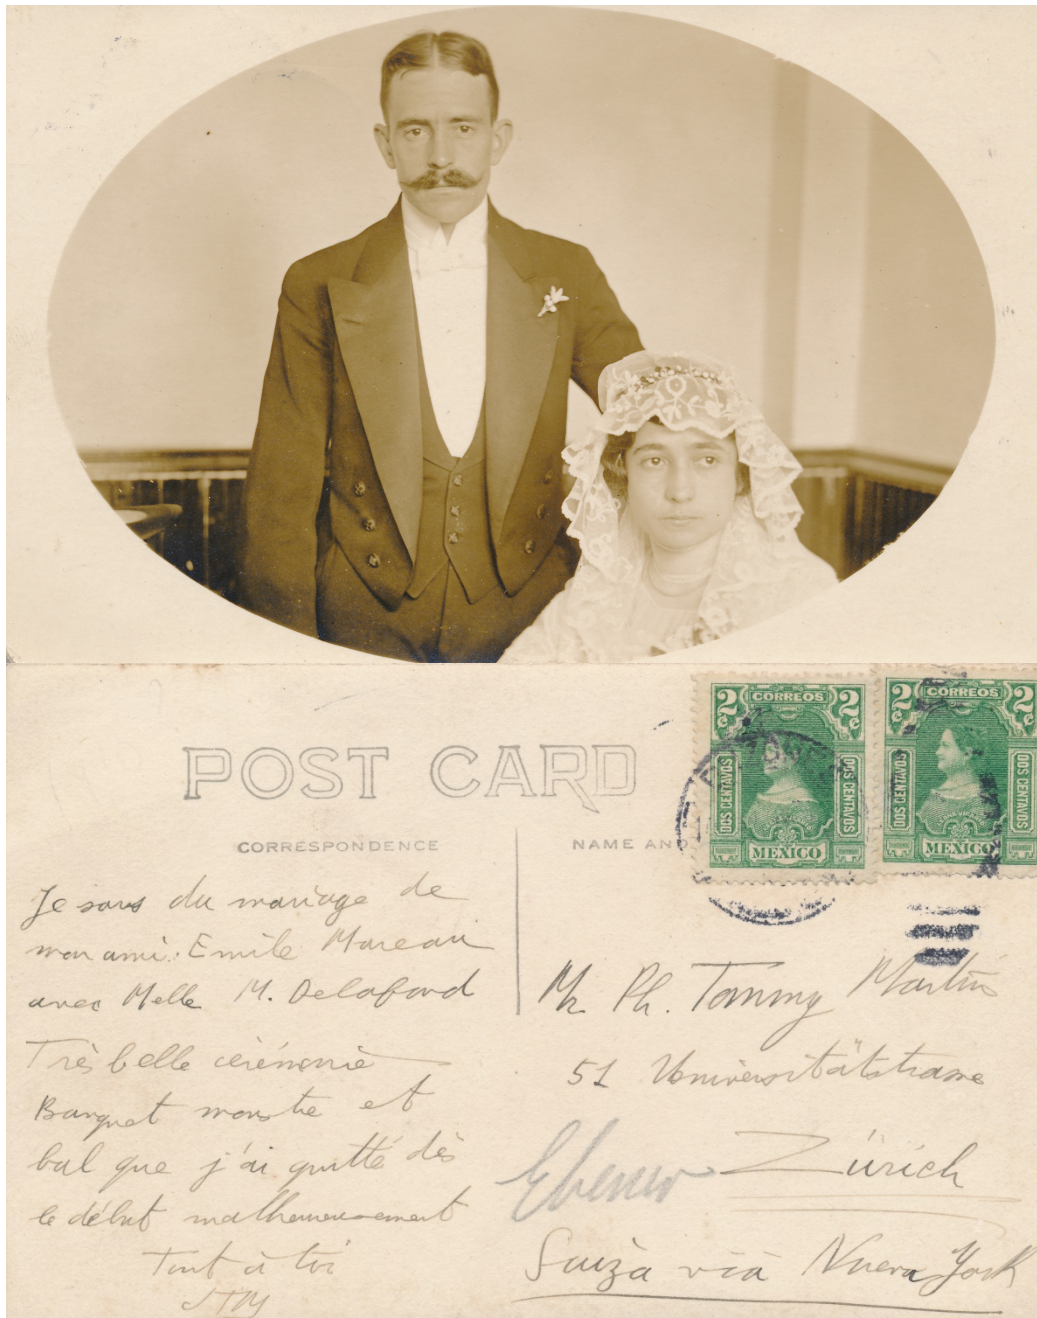 POST CARD
CORRESPONDENCE
NAME AND
2 CORREOS 2
DOS CENTAVOS
DOS CENTAVOS
MEXICO
2 CORREOS 2
DOS CENTAVOS
DOS CENTAVOS
MEXICO
Je sors du mariage de
mon ami. Emile Moreau
avec Melle M. Delafond
Très belle cérémonie
Banquet monstre et
bal que j'ai quitté dès
le début malheureusement
Tout à toi
JTM
Mr. Ph. Tommy Martin
51 Universitätstrasse
Zürich
Suiza vià Nueva York